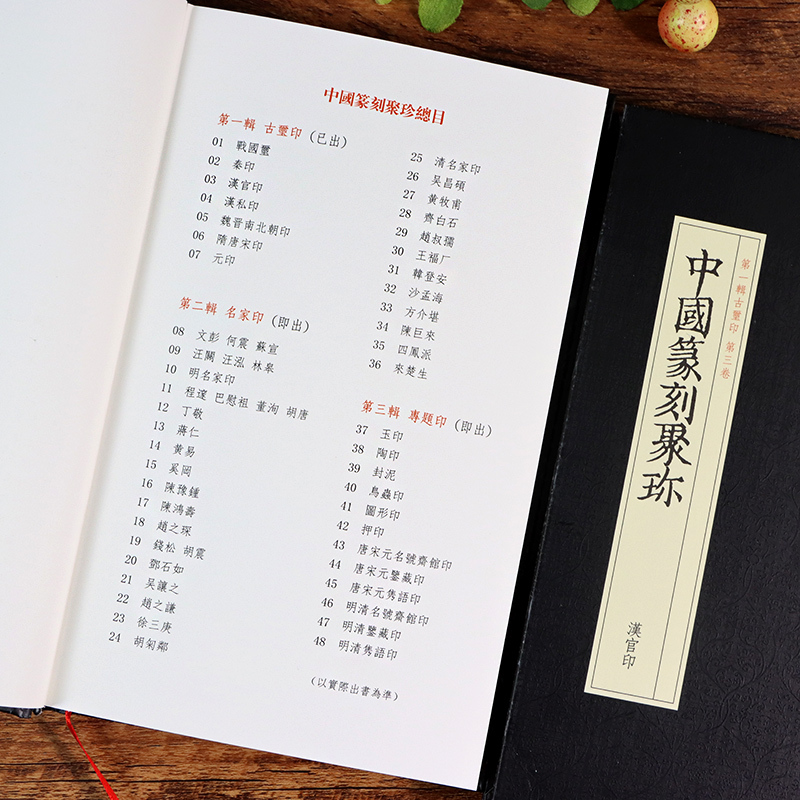 中國篆刻聚珍總目
第一輯 古璽印(已出)
01 戰國璽
02 秦印
03 漢官印
04 漢私印
05 魏晉南北朝印
06 隋唐宋印
07 元印
第二輯 名家印(即出)
08 文彭 何震 蘇宣
09 汪關 汪泓 林皋
10 明名家印
11 程邃 巴慰祖 董洵 胡唐
12 丁敬
13 蔣仁
14 黃易
15 奚岡
16 陳豫鍾
17 陳鴻壽
18 趙之琛
19 錢松 胡震
20 鄧石如
21 吴讓之
22 趙之謙
23 徐三庚
24 胡匊鄰
25 清名家印
26 吴昌碩
27 黃牧甫
28 齊白石
29 趙叔孺
30 王福厂
31 韓登安
32 沙孟海
33 方介堪
34 陳巨來
35 四鳳派
36 來楚生
第三輯 專題印(即出)
37 玉印
38 陶印
39 封泥
40 鳥蟲印
41 圖形印
42 押印
43 唐宋元名號齋館印
44 唐宋元鑒藏印
45 唐宋元雋語印
46 明清名號齋館印
47 明清鑒藏印
48 明清雋語印
(以實際出書為準)
第一輯 古璽印 第三卷
中國篆刻聚珎
漢官印